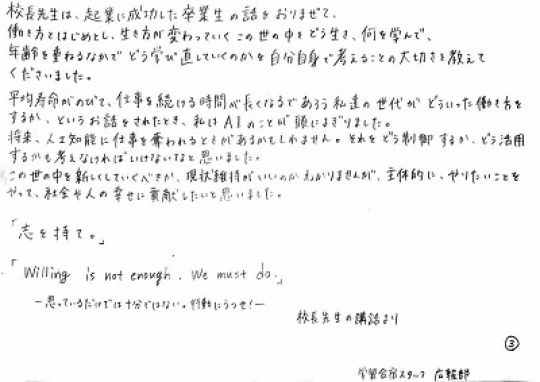 校長先生は、起業に成功した卒業生の話をおりまぜて、
働き方をはじめとし、生き方が変わっていくこの世の中をどう生き、何を学んで、
年齢を重ねるなかでどう学び直していくのかを自分自身で考えることの大切さを教えて
くださいました。
平均寿命がのびて、仕事を続ける時間が長くなるであろう私達の世代がどういった働き方を
するか、というお話をされたとき、私はAIのことが頭によぎりました。
将来、人工知能に仕事を奪われるときがあるかもしれません。それをどう制御するか、どう活用
するかも考えなければいけないなと思いました。
この世の中を新しくしていくべきか、現状維持がいいのかわかりませんが、主体的に、やりたいことを
やって、社会や人の幸せに貢献したいと思いました。
「志を持て。」
「Willing is not enough. We must do.」
―思っているだけでは十分ではない。行動にうつせ!―
校長先生の講話より
③
学習合宿スタッフ 広報部